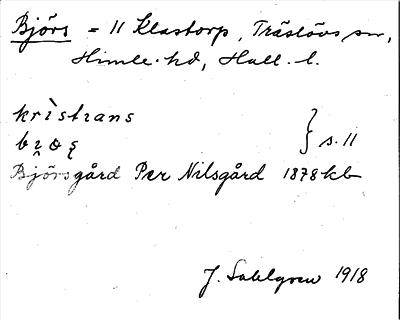 Björs = 11 Klastorp, Träslövs sn,
Himle hd, Hall. l.
krìstrans
} s. 11
Björsgård Per Nilsgård 1878 kb
J. Sahlgren 1918